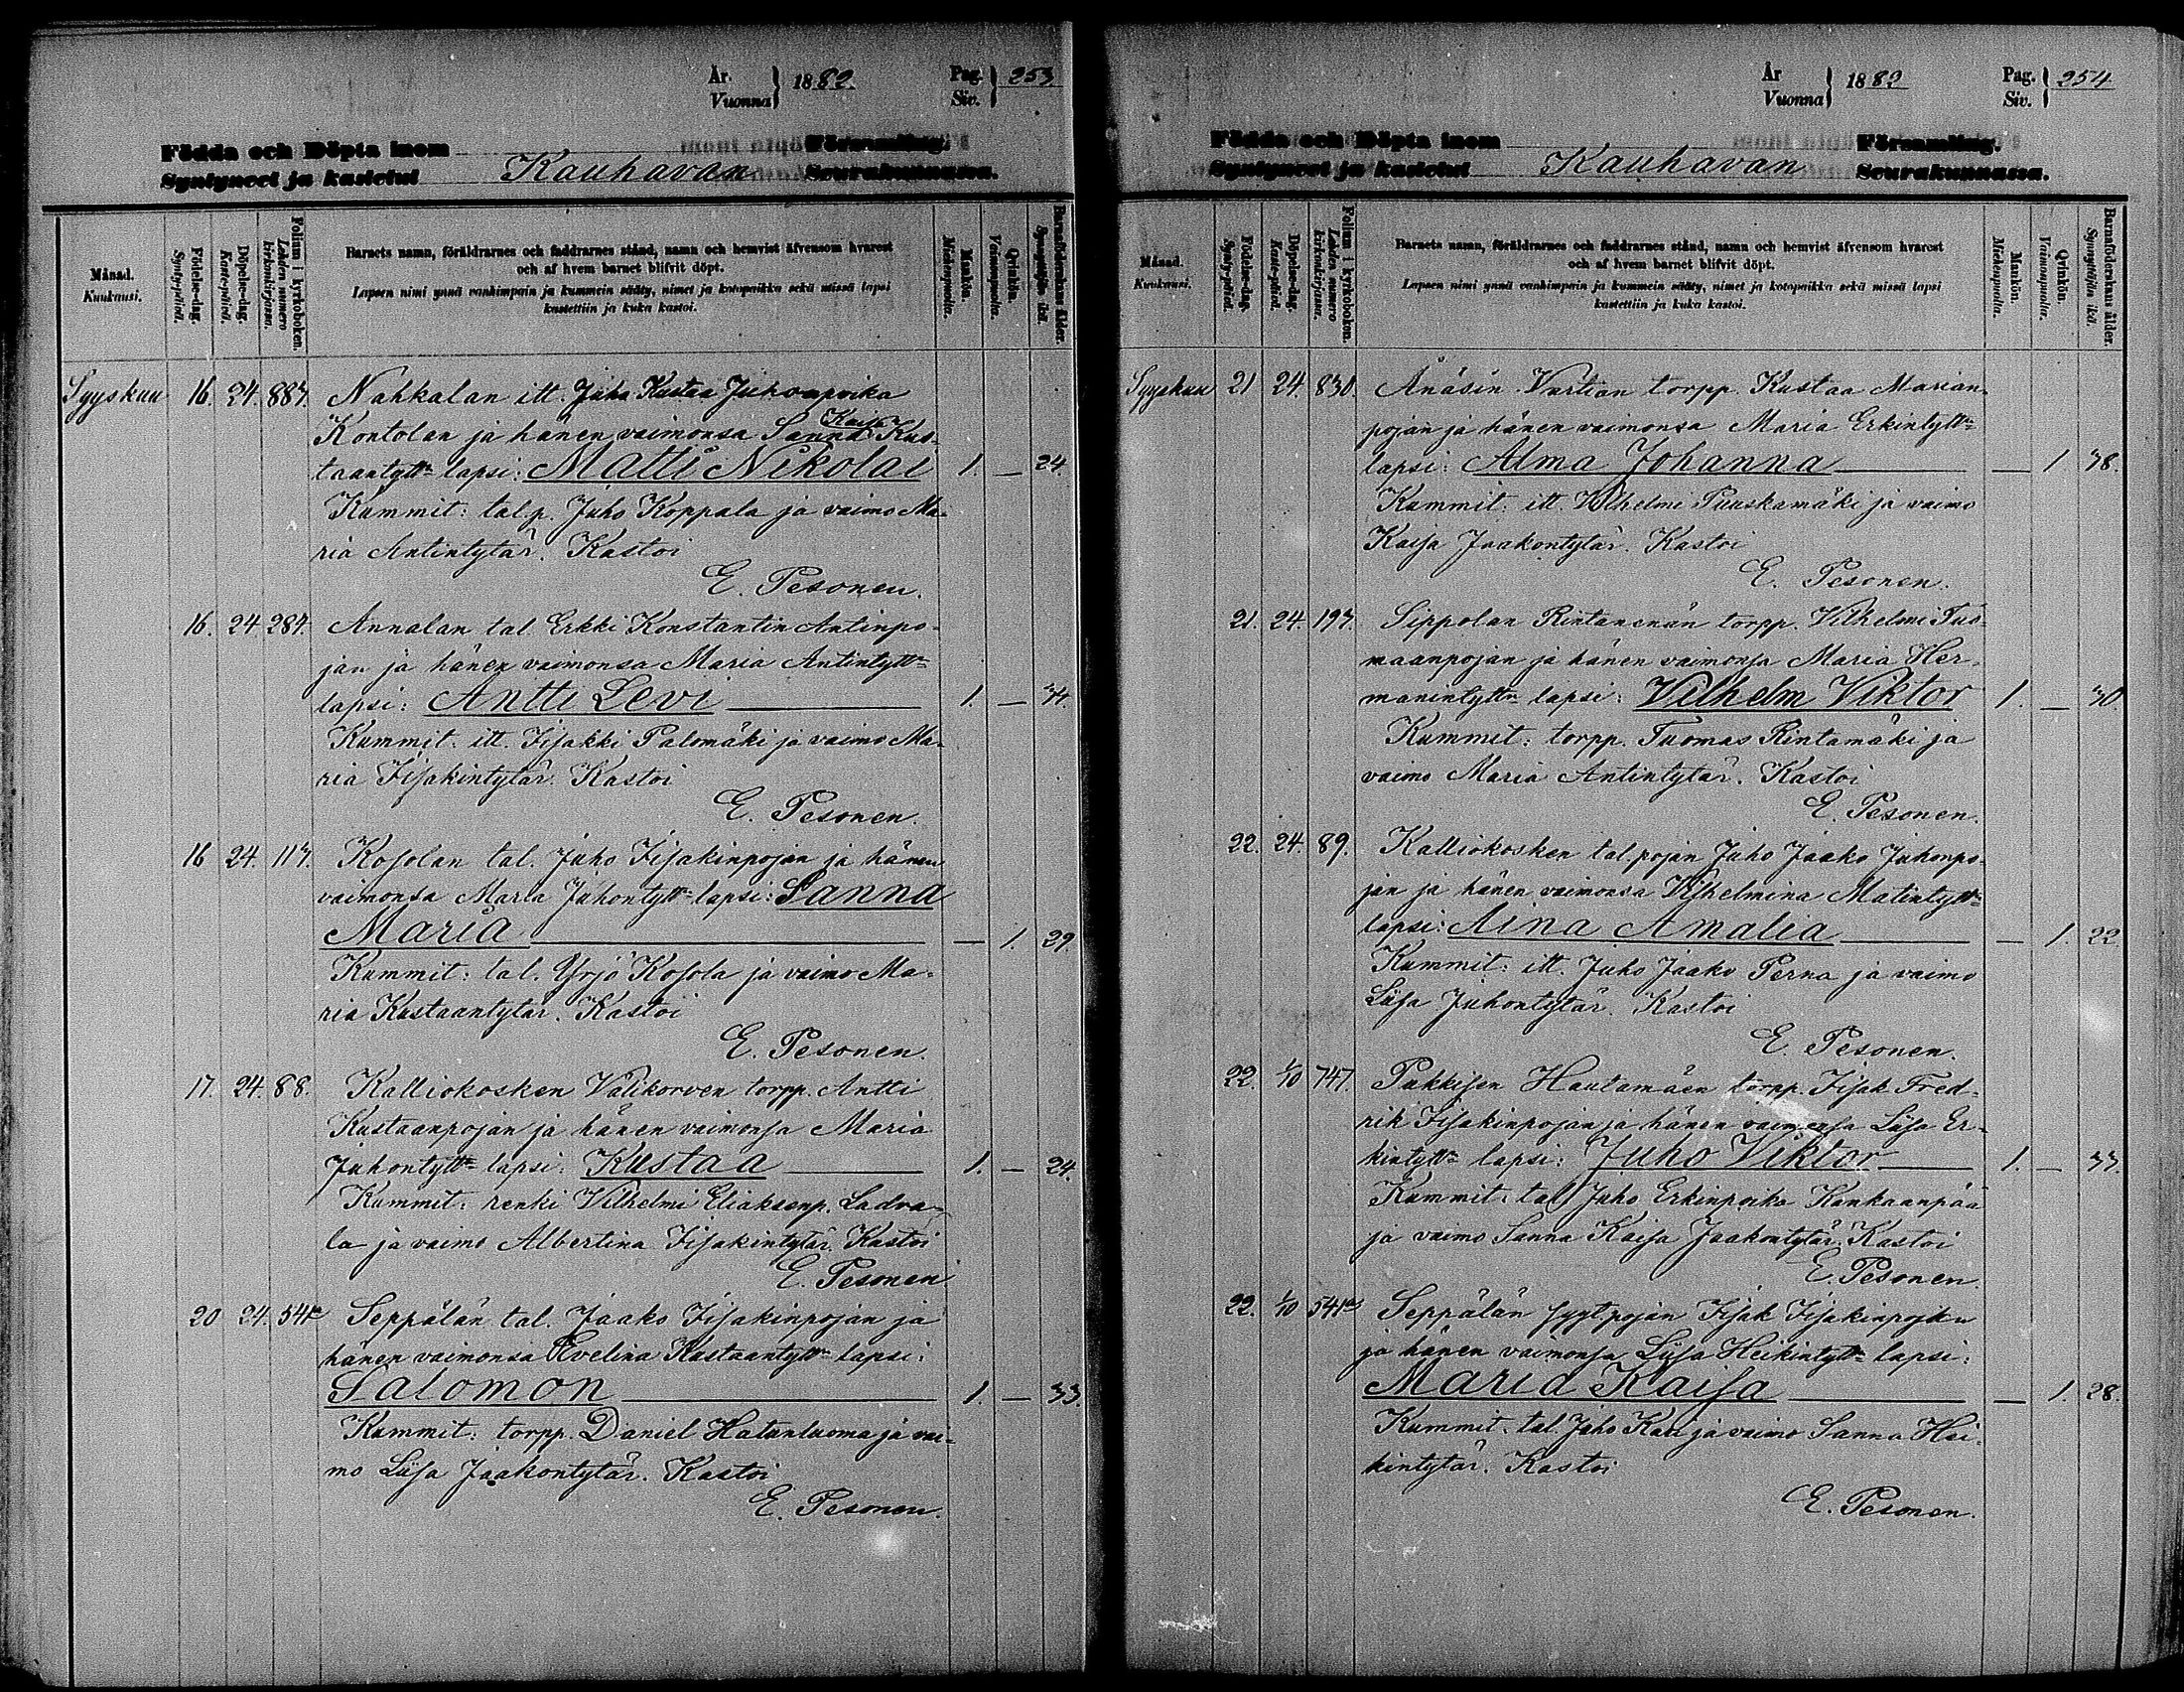 År Vuonna 1882. Pag. Siv. 253
Födda och Döpta inom Församling.
Syntyneet ja kastetut Kauhavan Seurakunnassa.
Månad. Kuukausi.
Födelse-dag. Synty-päivä.
Döpelse-dag. Kaste-päivä.
Folium i kyrkoboken. Lehden numero kirkonkirjassa.
Barnets namn, föräldrarnes och faddrarnes stånd, namn och hemvist äfvensom hvarest
och af hvem barnet blifvit döpt.
Lapsen nimi ynnä vanhimpain ja kummein sääty, nimet ja kotopaikka sekä missä lapsi
kastettiin ja kuka kastoi.
Mankön. Miehenpuolia.
Qvinkön. Vaimonpuolia.
Barnaföderskans ålder. Synnyttäjän ikä.
Syyskuu 16. 24. 887. Nahkalan itt. Juho Kustaa Juhonpoika
Kaisa
Kontolan ja hänen vaimonsa Sanna Kus-
taantytt:n lapsi: Matti Nikolai 1. — 24.
Kummit: tal.p. Juho Koppala ja vaimo Ma-
ria Antintytär. Kastoi
E. Pesonen.
16. 24 287. Annalan tal. Erkki Konstantin Antinpo-
jan ja hänen vaimonsa Maria Antintytt:n
lapsi: Antti Levi 1. —
Kummit: itt. Iisakki Palomäki ja vaimo Ma-
ria Iisakintytär. Kastoi
E. Pesonen.
16 24. 117. Kosolan tal. Juho Iisakinpojan ja hänen
vaimonsa Maria Juhontytt:n lapsi: Sanna
Maria — 1. 29.
Kummit: tal. Yrjö Kosola ja vaimo Ma-
ria Kustaantytär. Kastoi
E. Pesonen.
17. 24. 88. Kalliokosken Välikorven torpp. Antti
Kustaanpojan ja hänen vaimonsa Maria
Juhontytt:n lapsi: Kustaa 1. — 24.
Kummit: renki Vilhelmi Eliaksenp. Ladva-
la ja vaimo Albertina Iisakintytär. Kastoi
E. Pesonen
20 24. 541a Seppälän tal. Jaako Iisakinpojan ja
hänen vaimonsa Evelina Kustaantytt:n lapsi:
Salomon 1. — 33.
Kummit: torpp. Daniel Hatunluoma ja vai-
mo Liisa Jaakontytär. Kastoi
E. Pesonen.
År Vuonna 1882 Pag. Siv. 254
Födda och Döpta inom Församling.
Syntyneet ja kastetut Kauhavan Seurakunnassa.
Månad. Kuukausi.
Födelse-dag. Synty-päivä.
Döpelse-dag. Kaste-päivä.
Folium i kyrkoboken. Lehden numero kirkonkirjassa.
Barnets namn, föräldrarnes och faddrarnes stånd, namn och hemvist äfvensom hvarest
och af hvem barnet blifvit döpt.
Lapsen nimi ynnä vanhimpain ja kummein sääty, nimet ja kotopaikka sekä missä lapsi
kastettiin ja kuka kastoi.
Mankön. Miehenpuolia.
Qvinkön. Vaimonpuolia.
Barnaföderskans ålder. Synnyttäjän ikä.
Syyskuu 21 24. 830. Änäsin Vartian torpp. Kustaa Marian-
pojan ja hänen vaimonsa Maria Erkintytt:n
lapsi: Alma Johanna — 1 38.
Kummit: itt. Vilhelmi Puuskamäki ja vaimo
Kaisa Jaakontytär. Kastoi
E. Pesonen.
21. 24. 197. Sippolan Rintanenän torpp. Vilhelmi Tuo-
maanpojan ja hänen vaimonsa Maria Her-
manintytt:n lapsi: Vilhelm Viktor 1. — 30.
Kummit: torpp. Tuomas Rintamäki ja
vaimo Maria Antintytär. Kastoi
E. Pesonen.
22. 24. 89. Kalliokosken tal.pojan Juho Jaako Juhonpo-
jan ja hänen vaimonsa Vilhelmina Matintytt:n
lapsi: Aina Amalia — 1. 22
Kummit: itt. Juho Jaako Perna ja vaimo
Liisa Juhontytär. Kastoi
E. Pesonen.
22. 1/10 747. Pukkisen Hautamäen torpp. Iisak Fred-
rik Iisakinpojan ja hänen vaimonsa Liisa Er-
kintytt:n lapsi: Juho Viktor 1. — 33.
Kummit: tal. Juho Erkinpoika Kankaanpää
ja vaimo Sanna Kaisa Jaakontytär. Kastoi
E. Pesonen.
22. 1/10 541 Seppälän syyt.pojan Iisak Iisakinpojan
ja hänen vaimonsa Liisa Heikintytt:n lapsi:
Maria Kaisa — 1. 28.
Kummit: tal. Juho Kasi ja vaimo Sanna Hei-
kintytär. Kastoi
E. Pesonen.